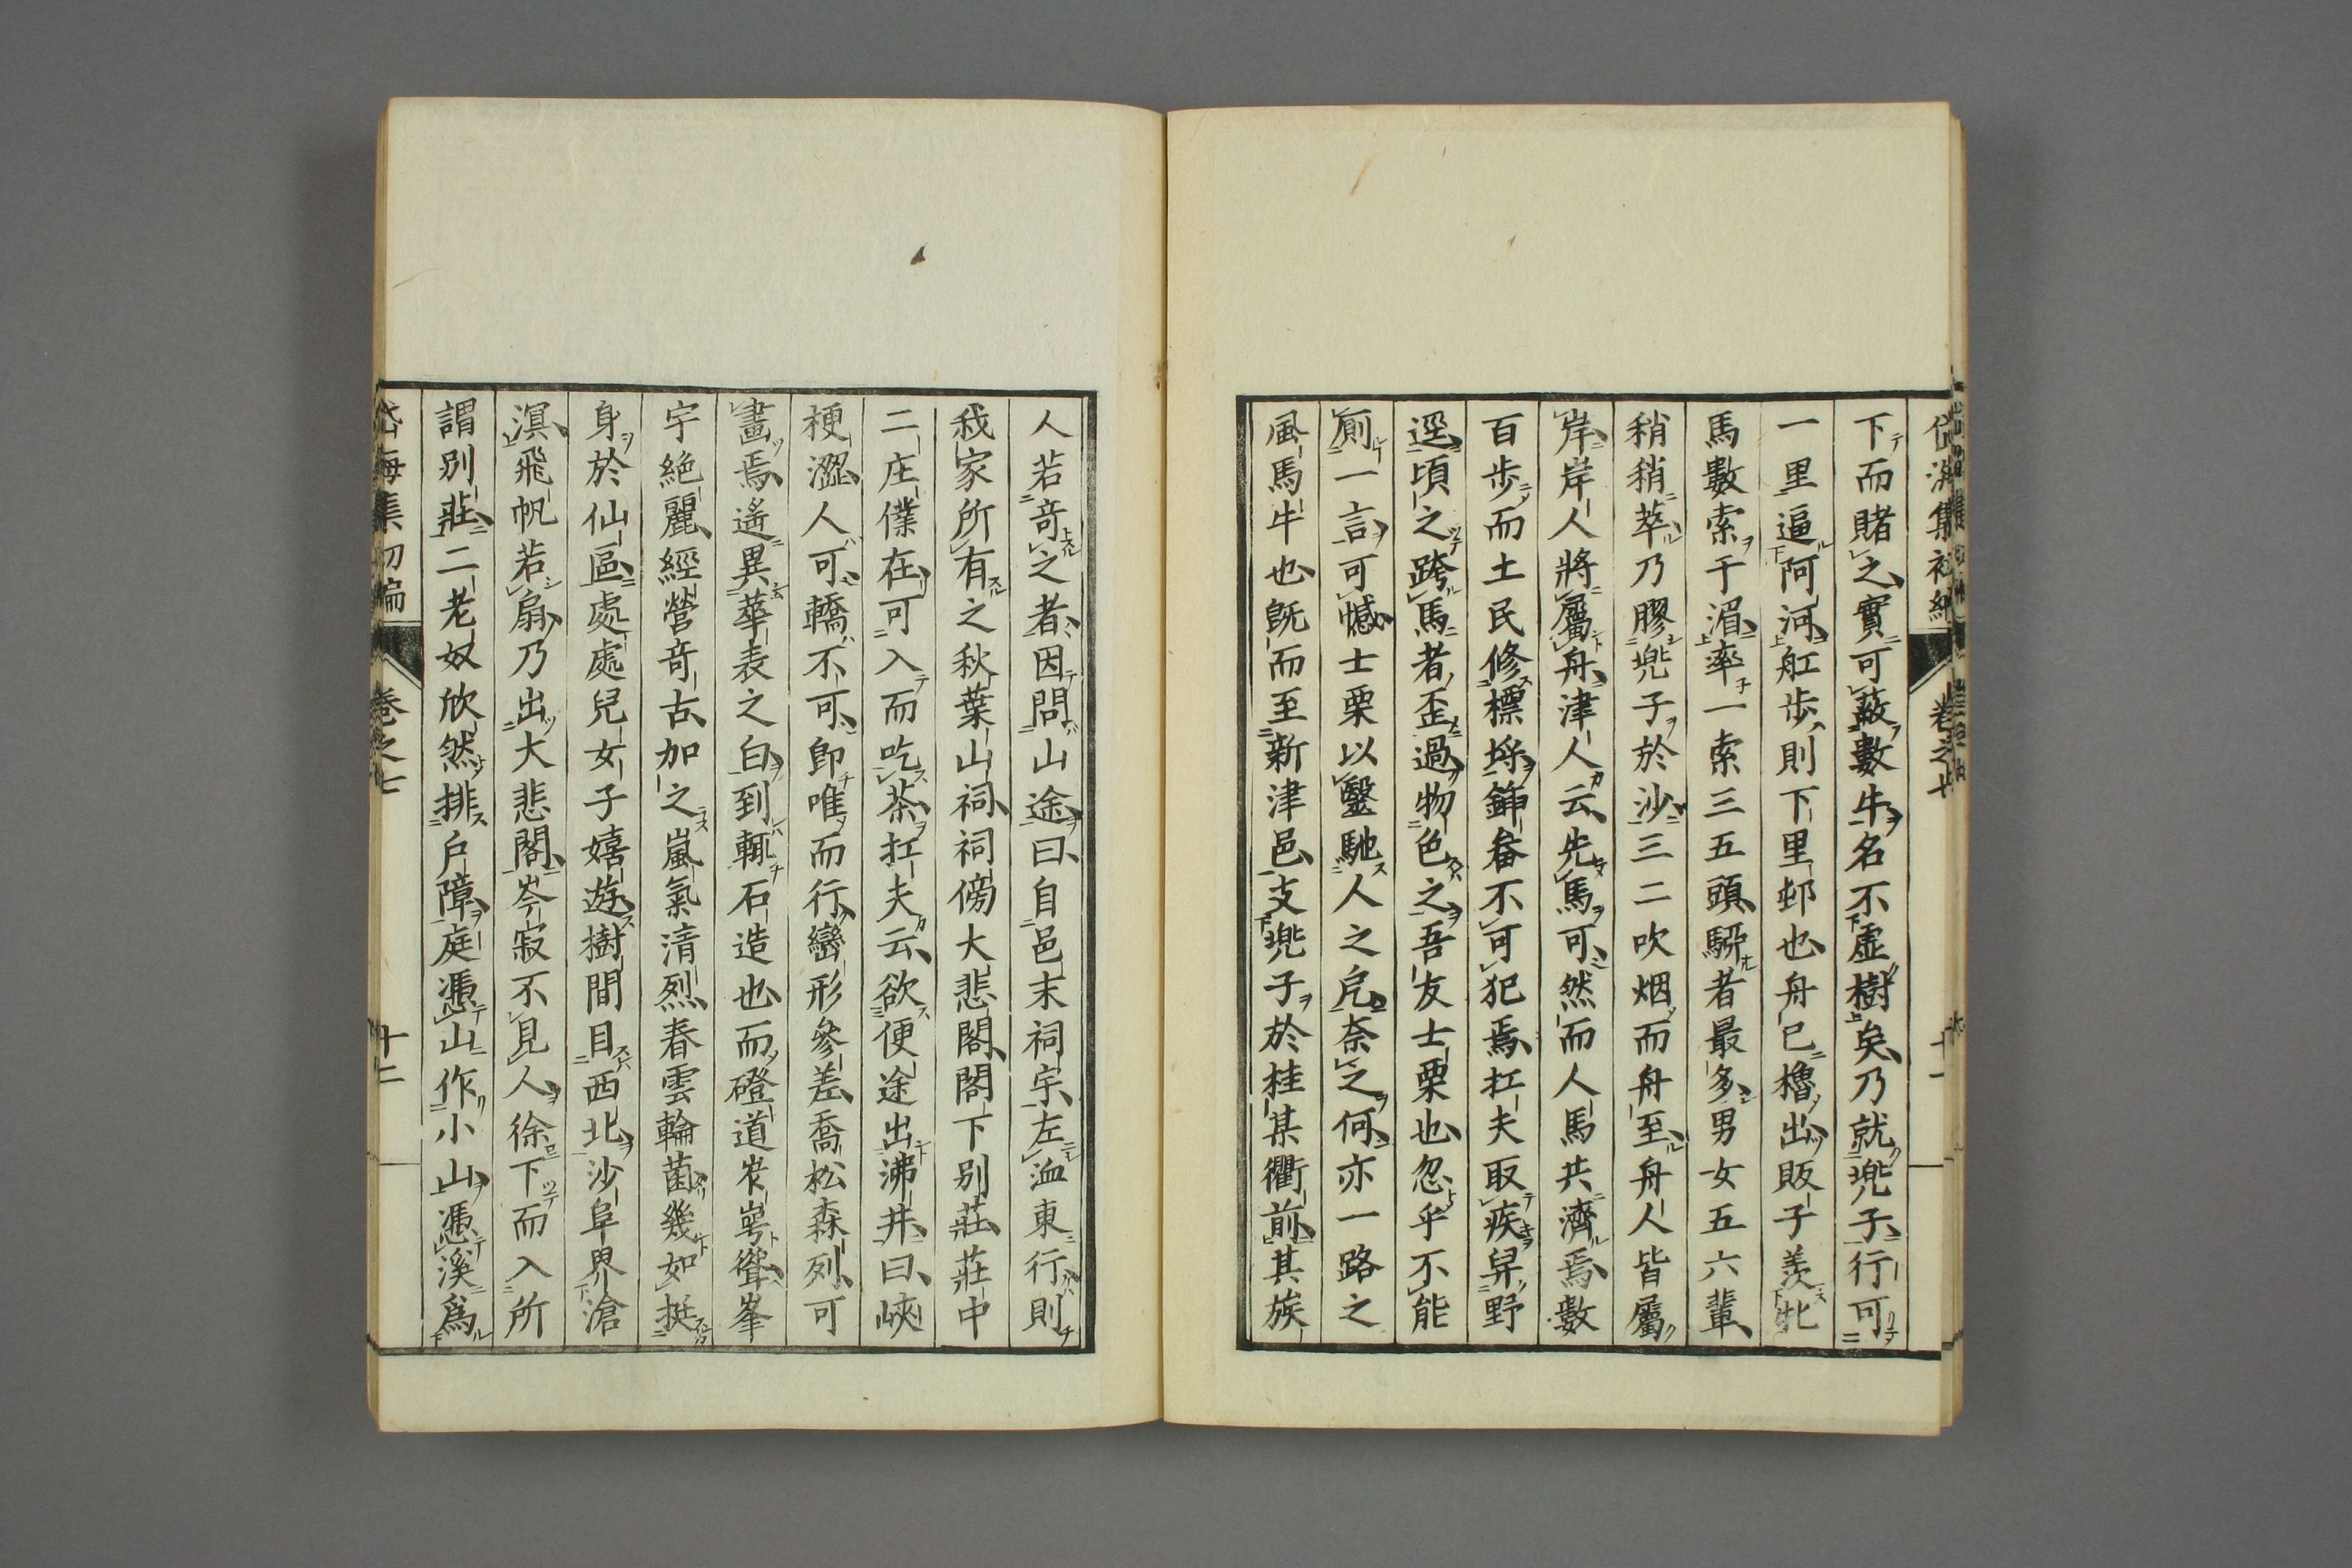 下而賭之實可蔽數牛名不虛樹矣乃就兠子行可
一里逼阿河舡步則下里邨也舟已櫓出販子羨牝
馬數索于湄率一索三五頭騲者最多男女五六輩
稍稍萃乃膠兠子於沙三二吹烟而舟至舟人皆屬
岸岸人將屬舟津人云先馬可然而人馬共濟焉數
百步而土民修標埒鍤畚不可犯焉扛夫取疾舁野
逕頃之跨馬者歪過物色之吾友士栗也忽乎不能
廁一言可憾士栗以鑿馳人之危奈之何亦一路之
風馬牛也既而至新津邑支兠子於桂某衢前其族
卷之七
十一
人若竒之者因問山途曰自邑末祠宗左洫東行則
我家所有之秋葉山祠祠傍大悲閣閣下別莊莊中
二庄僕在可入而吃茶扛夫云欲便途出沸井曰峽
梗澀人可轎不可即唯而行巒形參差喬松森列可
畫焉遙異華表之白到輒石造也而磴道岝崿聳峯
宇絶麗經營竒古加之嵐氣清烈春雲輪菌幾如挺
身於仙區處處兒女子嬉遊樹間目西北沙阜界滄
溟飛帆若扇乃出大悲閣岑寂不見人徐下而入所
謂別莊二老奴欣然排戸障庭憑山作小山憑溪爲
海集初編
卷之七
十二